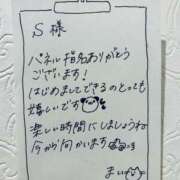 S 様
パネル指名ありがとう
ございます!
はじめましてできるのとっても
嬉しいです
楽しい時間にしましょうね
今から向かいます
まい